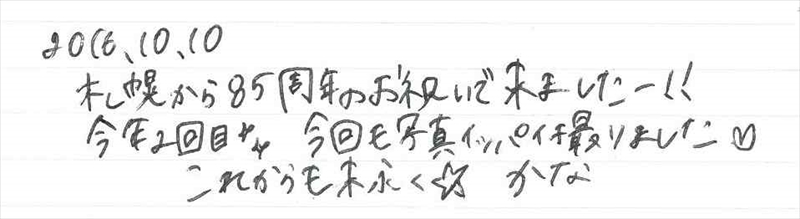 2016、10、10
札幌から85周年のお祝いで来ましたー!!
今年2回目^^ 今回も写真イッパイ撮りました♡
これからも末永く☆ かな